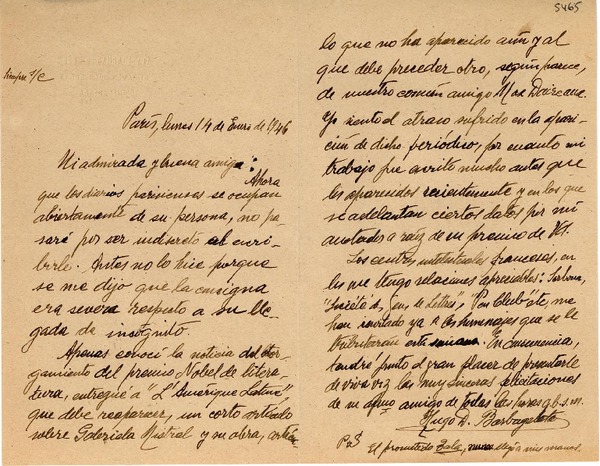 5465
Siempre s/c
París, lunes 14 de Enero de 1946
Mi admirada y buena amiga: Ahora
que los diarios parisienses se ocupan
abiertamente de su persona, no pe-
saré por ser indiscreto al escri-
birle. Antes no lo hice porque
se me dijo que la consigna
era severa respecto a su lle-
gada de incógnito.
Apenas conocí la noticia del otor-
gamiento del premio Nobel de litera-
tura, entregué a "L'Amérique Latine",
que debe reaparecer, un corto artículo
sobre Gabriela Mistral y su obra, artícu-
lo que no ha aparecido aún y al
que debe preceder otro, según parece,
de nuestro común amigo Max Daireaux.
Yo siento el atraso sufrido en la apari-
ción de dicho periódico, por cuanto mi
trabajo fue escrito mucho antes que
los aparecidos recientemente y en los que
se adelantan ciertos datos por mí
anotados a raíz de su premio de Vd.
Los centros intelectuales franceses, en
los que tengo relaciones apreciables: Sorbona,
"Société des Gens de Lettres", "Pen Club" etc, me
han invitado ya a los homenajes que se le
tributarán esta semana. En consecuencia,
tendré pronto el gran placer de presentarle
de viva voz las muy sinceras felicitaciones
de su afmo amigo de todas las horas q.b.s.m.
Hugo D. Barbagelata
Ps/ El prometido llegó a mis manos.